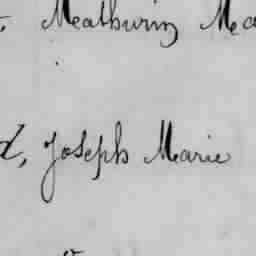 Mathurin Ma
d, Joseph Marie